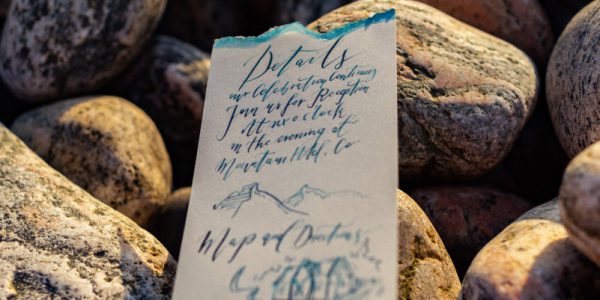 Details
our Celebration Continues
Join us for Reception
At six o'clock
in the evening at
Mountain Hotel, Co
Map and Directions